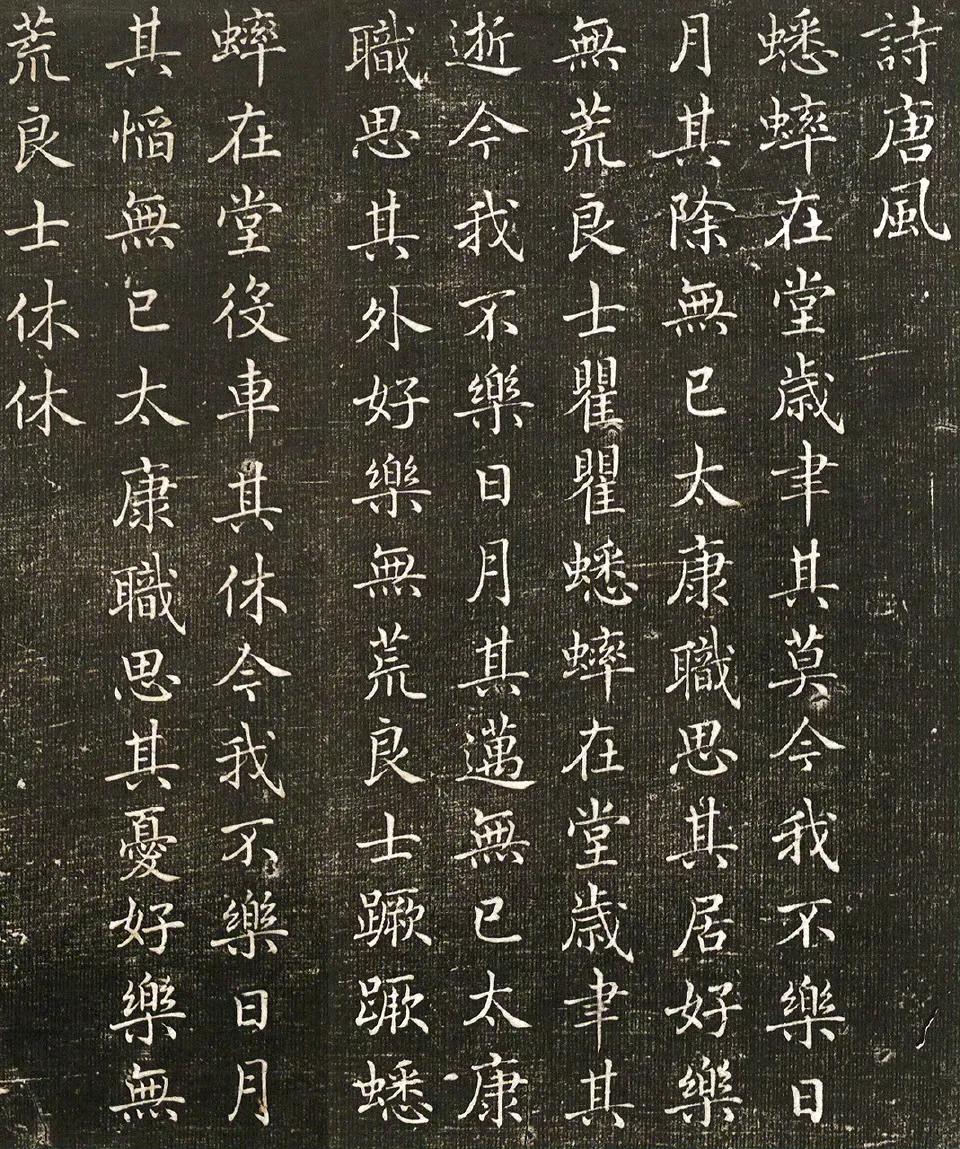 詩唐風
蟋蟀在堂歳聿其莫今我不樂日
月其除無已太康職思其居好樂
無荒良士瞿瞿蟋蟀在堂歳聿其
逝今我不樂日月其邁無已太康
職思其外好樂無荒良士蹶蹶蟋
蟀在堂役車其休今我不樂日月
其慆無已太康職思其憂好樂無
荒良士休休